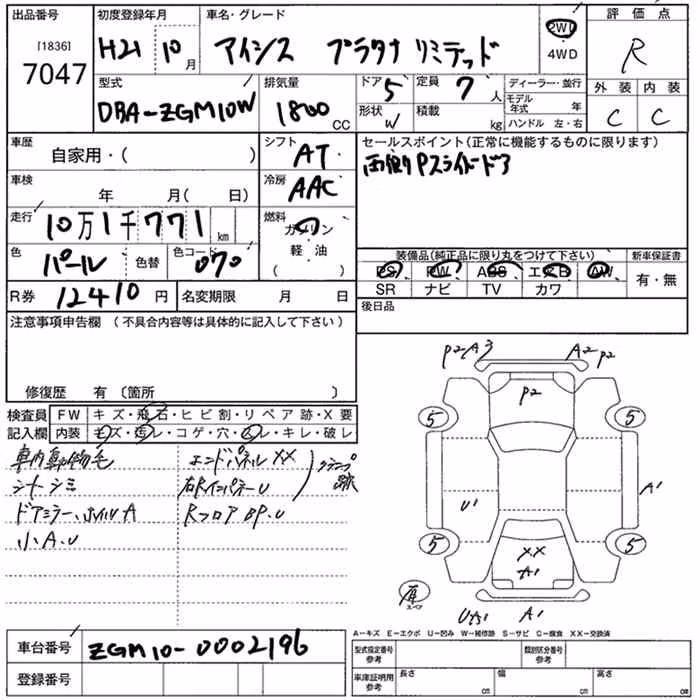 出品番号 初度登録年月 車名・グレード 2WD 評価点
[1836] H21 10月 アイシス プラタナ リミテッド 4WD R
7047
型式 排気量 ドア 5 定員 7人 ディーラー・並行 外装 内装
DBA-ZGM10W 1800 CC 形状 W 積載 kg モデル年式 年 C C
ハンドル 左・右
車歴 シフト セールスポイント(正常に機能するものに限ります)
自家用・( ) AT 両側Pスライドドア
車検 年 月( 日) 冷房 AAC
走行 10万1千771km 燃料 ガソリン
色 パール 色替 色コード 070 軽油 ( )
装備品(純正品に限り丸をつけて下さい) 新車保証書
PS PW ABS エアB AW 有・無
SR ナビ TV カワ
R券 12410円 名変期限 月 日 後日品
注意事項申告欄 (不具合内容等は具体的に記入して下さい)
修復歴 有 (箇所 )
検査員 FW キズ・飛石・ヒビ割・リペア跡・X要
記入欄 内装 キズ・汚レ・コゲ・穴・スレ・キレ・破レ
車内動物毛 エンドパネルXX クランプ跡
シートシミ 右RインパネーU
ドアミラー、ホイルA RフロアBP.U
小A.U
P2 A3 A2 P2
P2
5 5
U1 A1
5 5
XX
A1
庫 スペア
UA1 A1
A-キズ E-エクボ U-凹み W-補修跡 S-サビ C-腐食 XX-交換済
車台番号 ZGM10-0002196 型式指定番号 参考 類別区分番号 参考
登録番号 車庫証明用 参考 長さ cm 幅 cm 高さ cm